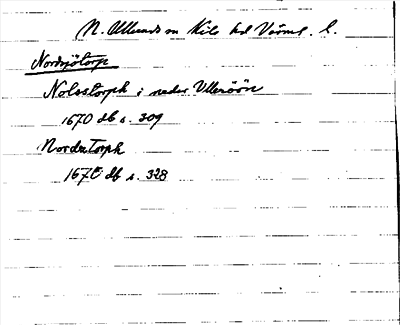 N. Ullerud sn Kils hd Värml. l.
Nordsjötorp
Nolsstorph i nedre Ulleröön
1670 db s. 309
Nordretorph
1670 db s. 328